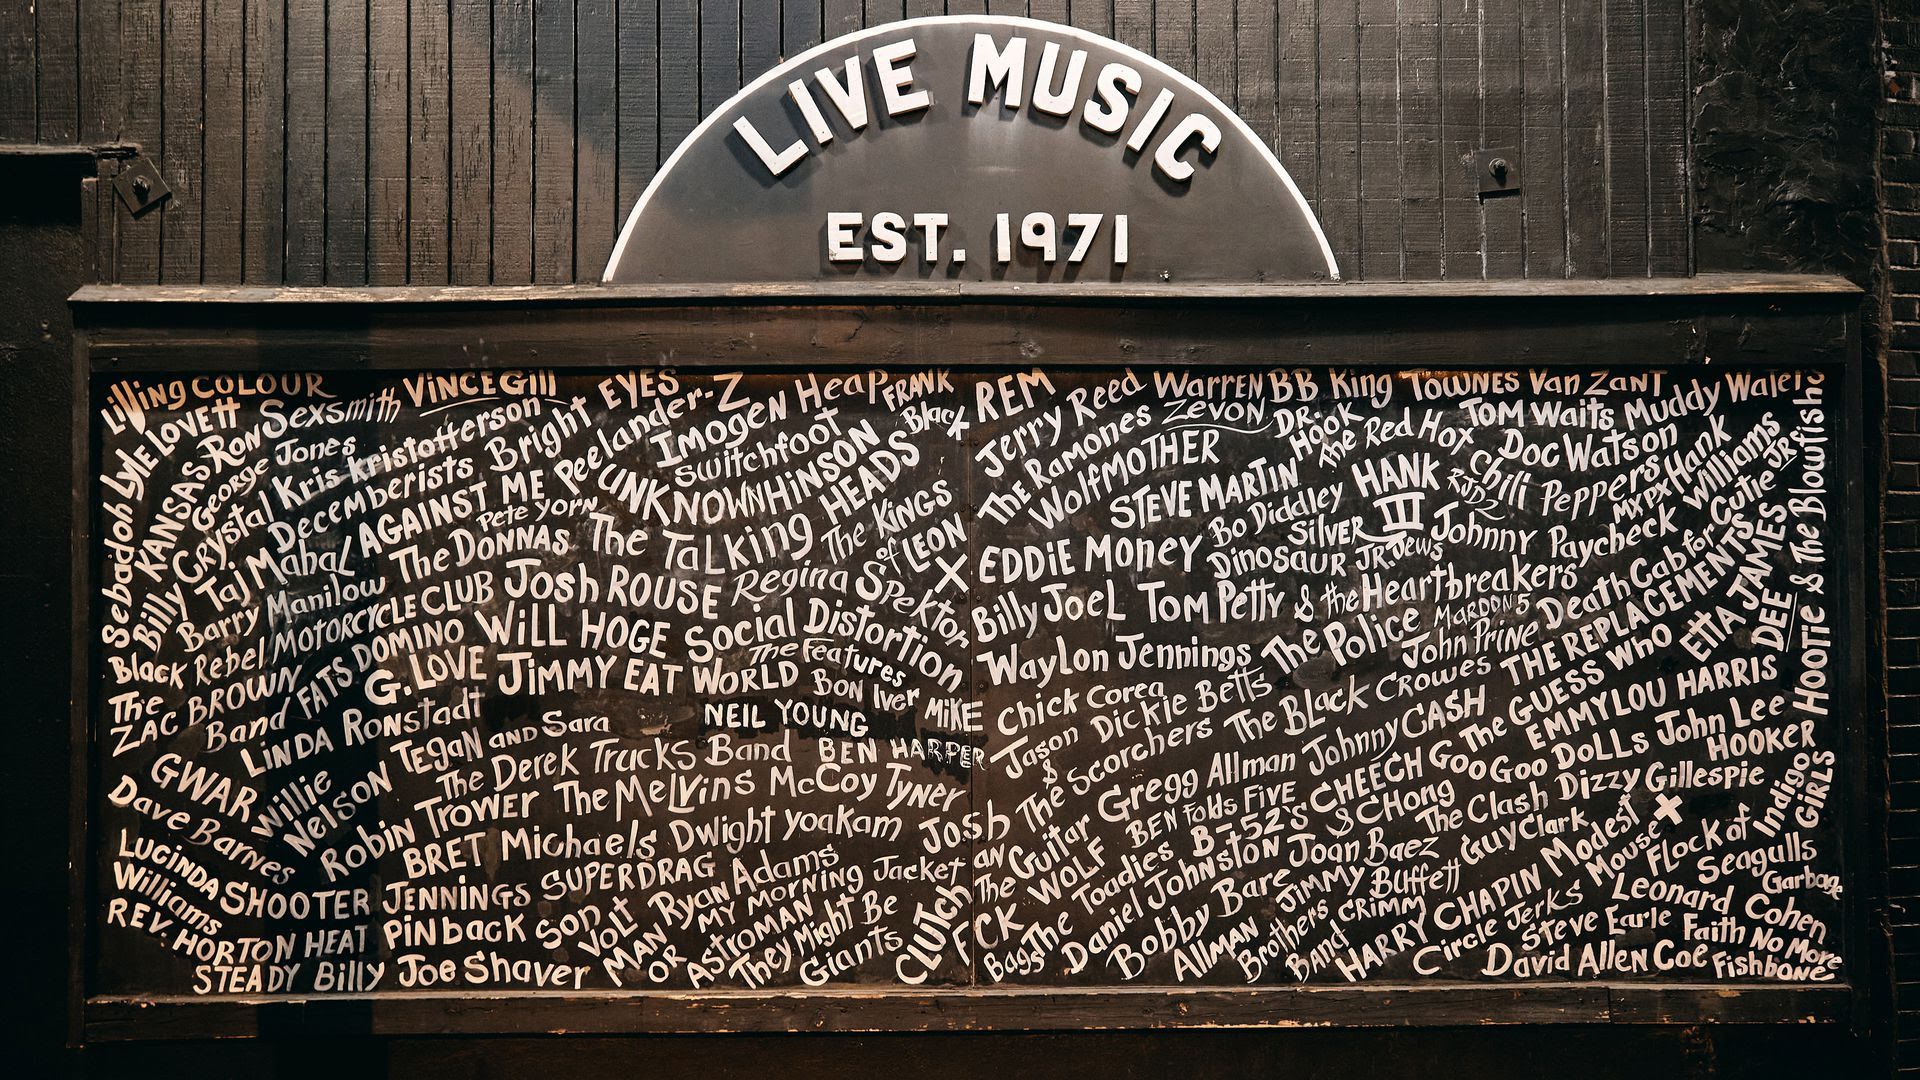 LIVE MUSIC
EST. 1971
Living COLOUR
Lyle LOVETT
Ron Sexsmith
VINCE Gill
Bright EYES
Peelander-Z
Imogen Heap
FRANK Black
Sebadoh
KANSAS
George Jones
Billy Crystal
Kris Kristofferson
Decemberists
Switchfoot
UNKNOWN HINSON
Taj Mahal
AGAINST ME
Pete Yorn
The TALKING HEADS
The KINGS of LEON
X
Barry Manilow
The DONNAS
Black Rebel MOTORCYCLE CLUB
Josh ROUSE
Regina Spektor
The ZAC BROWN Band
FATS DOMINO
WiLL HOGE
Social Distortion
G. LOVE
JIMMY EAT WORLD
The Features
BON Iver
MIKE
LINDA Ronstadt
NEIL YOUNG
TEGAN AND Sara
BEN HARPER
GWAR
Willie NELSON
The Derek Trucks Band
Dave Barnes
Robin Trower
The MELVINS
McCoy Tyner
LUCINDA Williams
BRET Michaels
Dwight yoakam
Josh
SHOOTER JENNINGS
SUPERDRAG
Ryan Adams
MY MORNING Jacket
REV. HORTON HEAT
PINback
Son Volt
MAN OR ASTROMAN
They Might Be Giants
CLUTCH
STEADY Billy Joe Shaver
REM
Jerry Reed
Warren Zevon
BB King
TOWNES Van Zant
Muddy Waters
The Ramones
DR. Hook
The Red Hot Chili Peppers
TOM Waits
Doc Watson
WOLFMOTHER
STEVE MARTIN
HANK III
RJD2
MXPX
Hank Williams JR
EDDIE Money
Bo Diddley
SILVER Jews
Dinosaur JR.
Johnny Paycheck
Billy JOEL
Tom Petty & the Heartbreakers
MAROON 5
Death Cab for Cutie
Waylon Jennings
The Police
John Prine
THE REPLACEMENTS
ETTA JAMES
DEE
HOOTIE & The Blowfish
Chick Corea
Dickie Betts
The Black Crowes
The GUESS WHO
EMMYLOU HARRIS
Jason & The Scorchers
Gregg Allman
Johnny CASH
Goo Goo DoLLs
John Lee HOOKER
Indigo GIRLS
The Guitar WOLF
BEN Folds FIVE
CHEECH & CHONG
The Clash
Dizzy Gillespie
FCK
Bags
The Toadies
B-52's
Joan Baez
Guy Clark
Modest Mouse
FLOCK of Seagulls
Daniel Johnston
Bobby Bare
JIMMY Buffett
HARRY CHAPIN
Circle Jerks
Leonard Cohen
Garbage
ALLMAN Brothers Band
GRIMM
Steve Earle
Faith No More
David Allen Coe
Fishbone